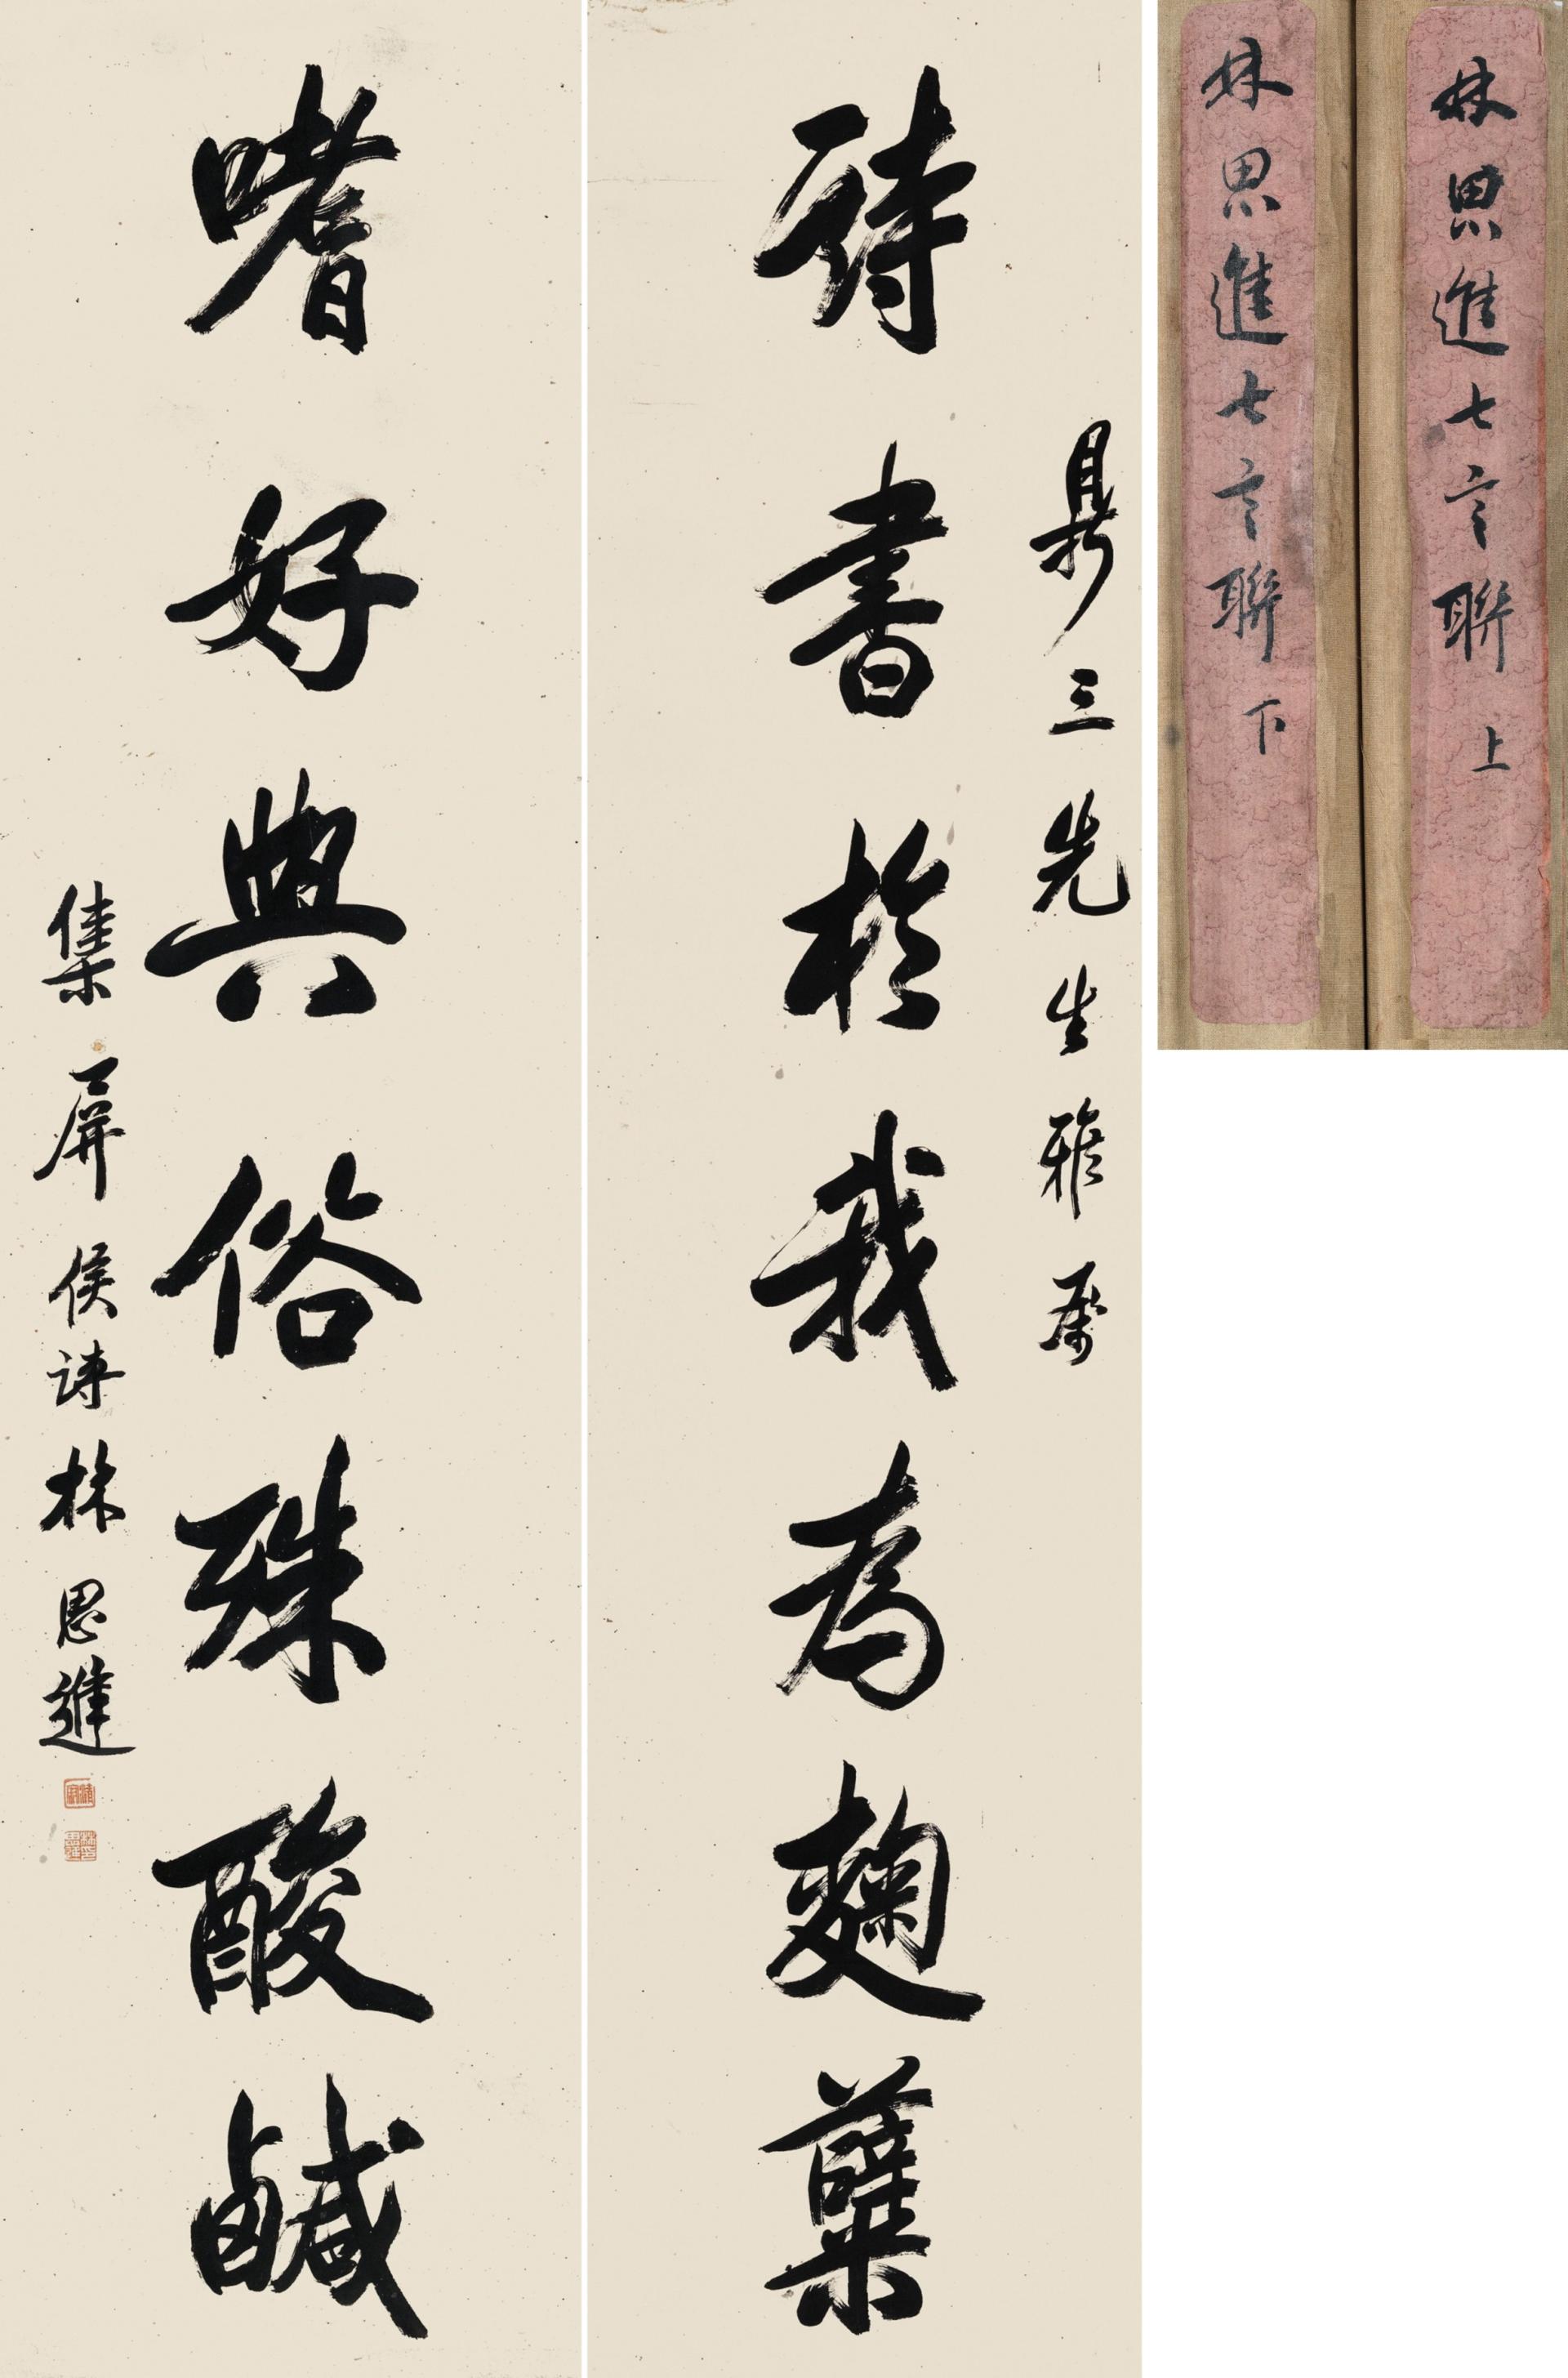 鼎三先生雅屬
詩書於我為麴蘖
嗜好與俗殊酸鹹
集屏侯詩林思進
林思進七言聯 上
林思進七言聯 下